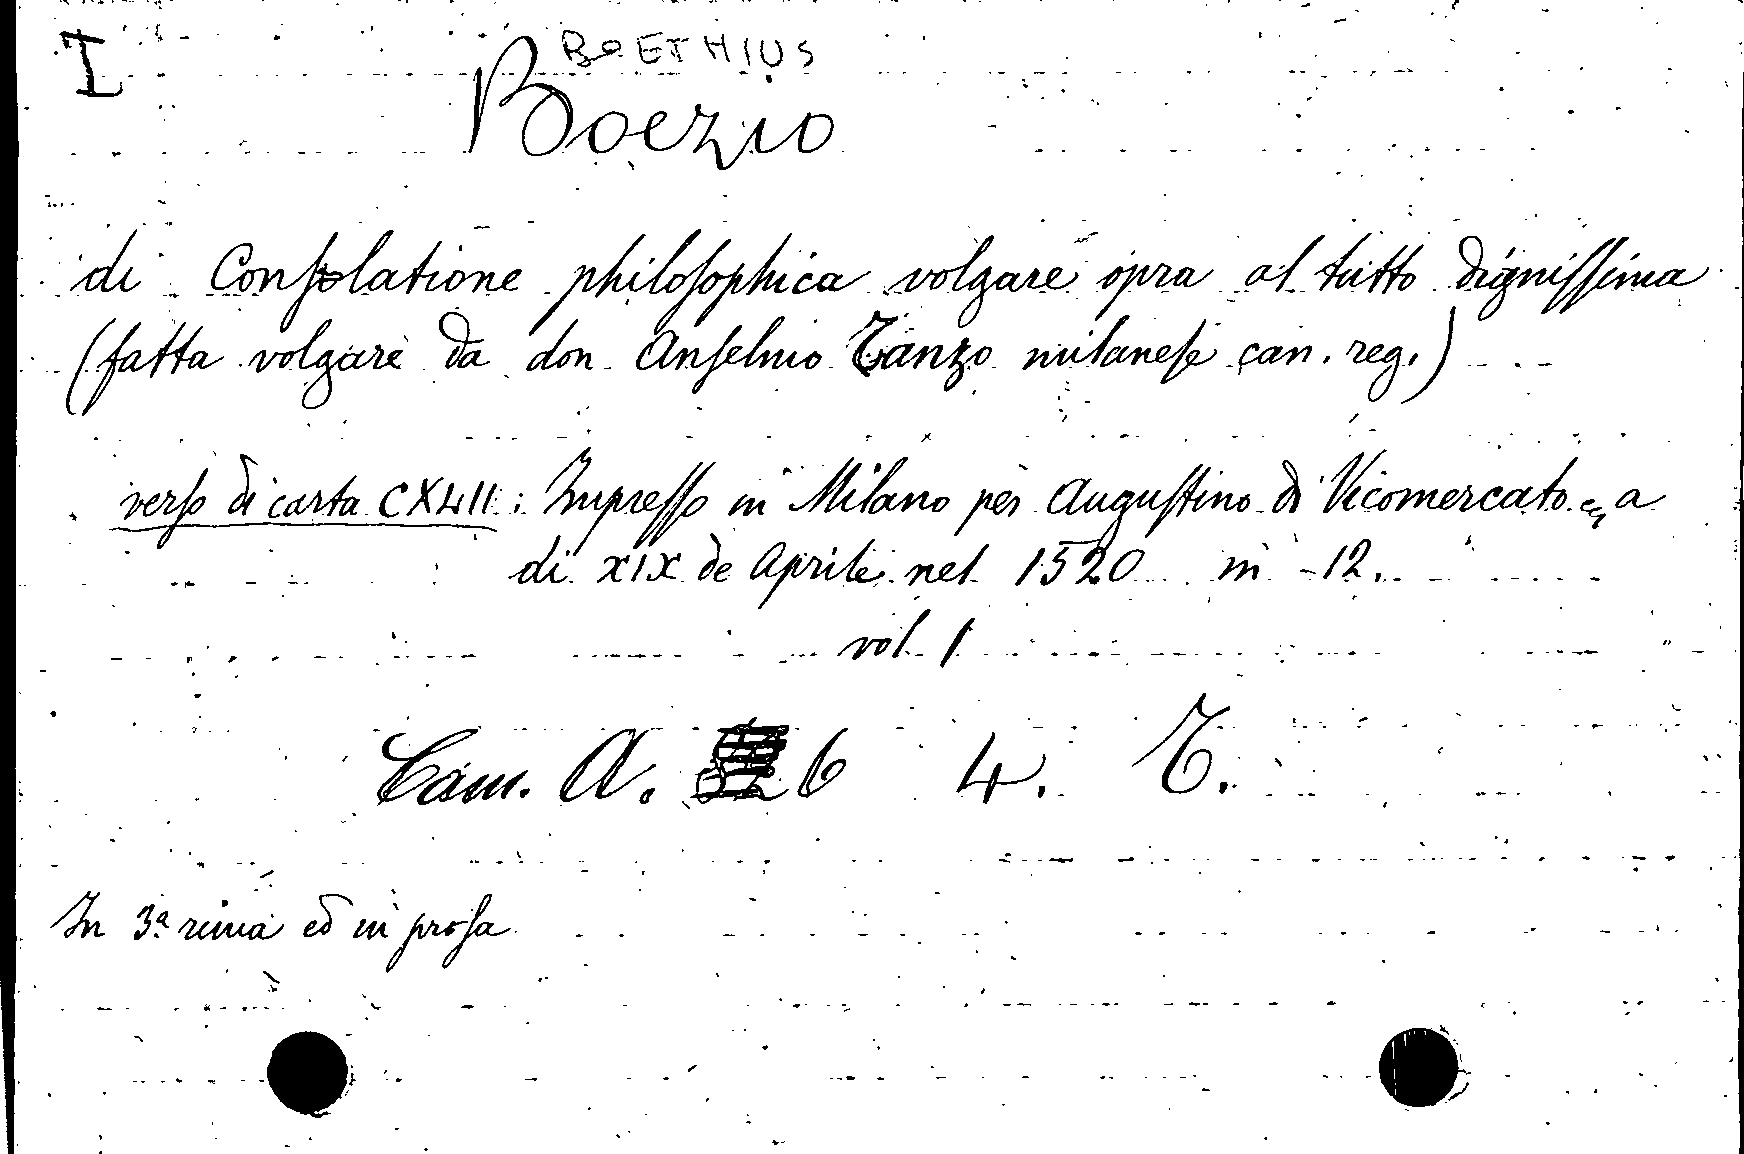 I
BOETHIUS
Boezio
di Conſolatione philoſophica volgare opra al tutto digniſſima
(fatta volgare da don Anſelmo Tanzo milaneſe can. reg.)
verſo di carta CXLII: Impreſſo in Milano per Auguſtino di Vicomercato a
di XIX de Aprile nel 1520 in -12.
vol. 1
Cam. A. 6 4. T.
In 3ª rima ed in proſa